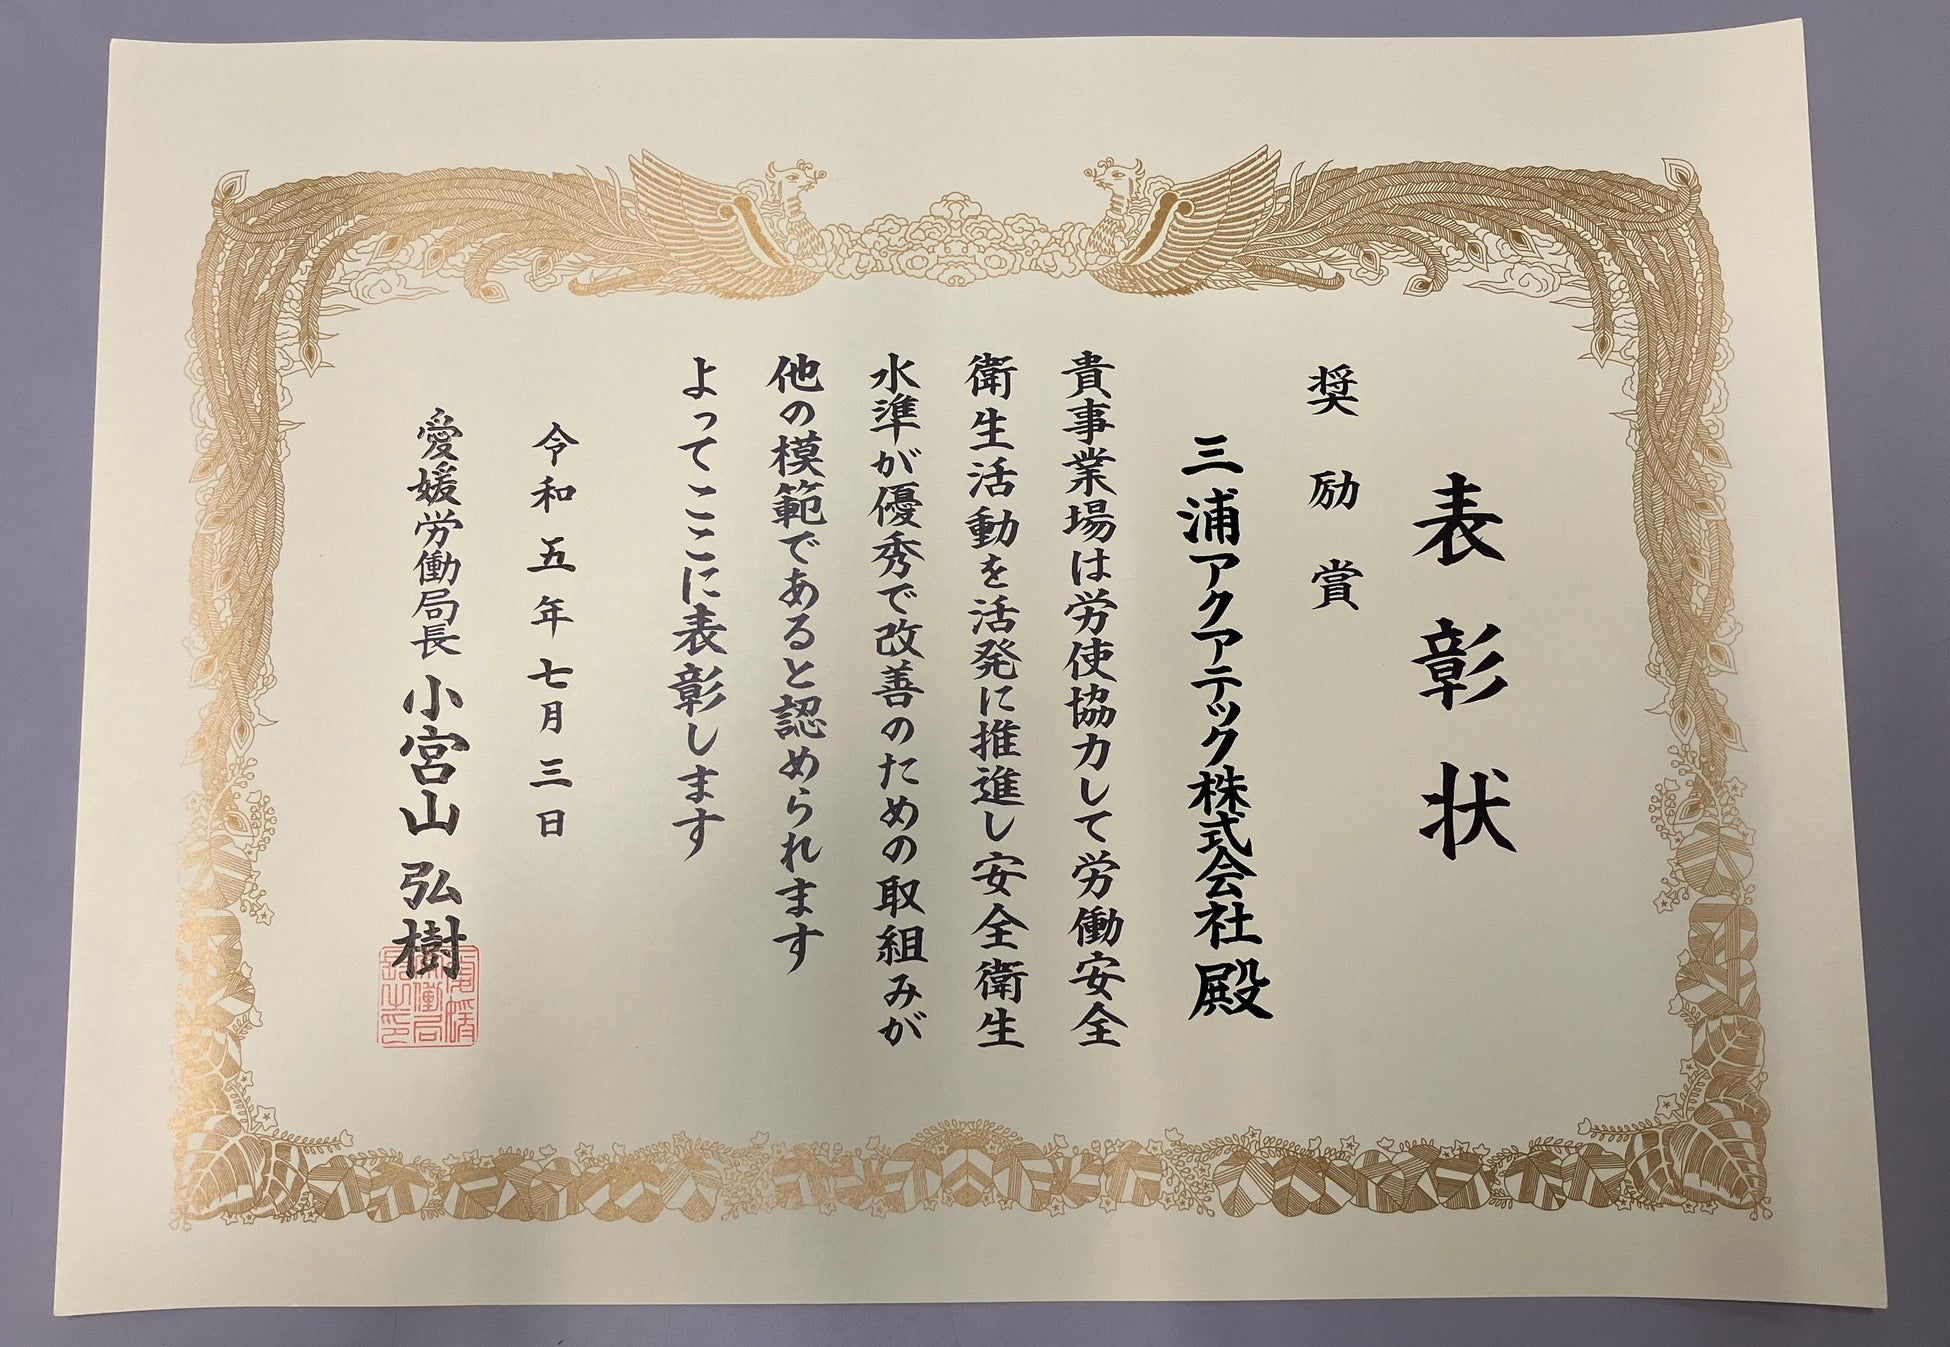 表彰状
奨励賞
三浦アクアテック株式会社殿
貴事業場は労使協力して労働安全
衛生活動を活発に推進し安全衛生
水準が優秀で改善のための取組みが
他の模範であると認められます
よってここに表彰します
令和五年七月三日
愛媛労働局長 小宮山弘樹
愛媛労働局長之印